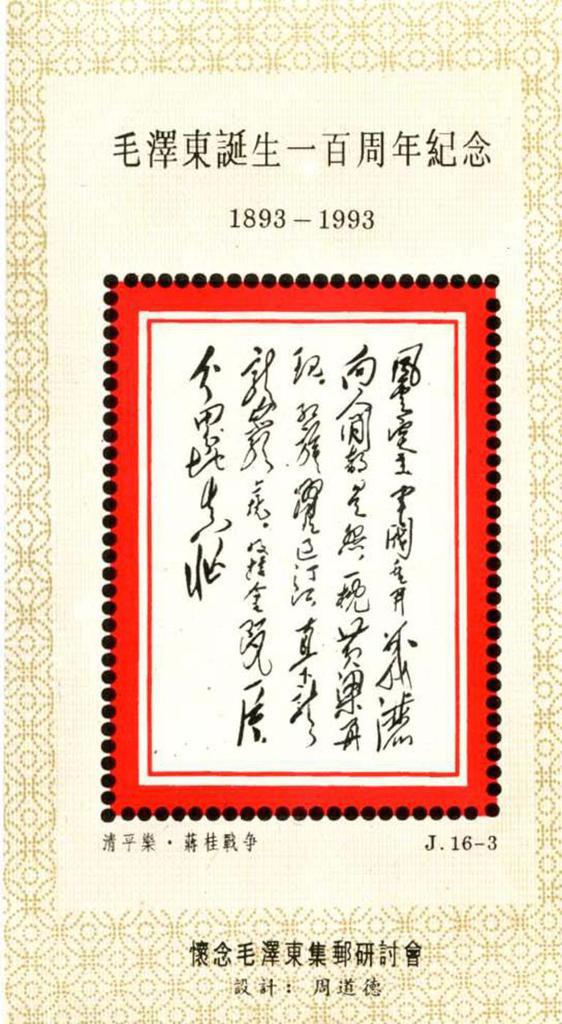 毛澤東誕生一百周年紀念
1893－1993
風雲突變 軍閥重開戰 灑
向人間都是怨 一枕黃粱再
現。紅旗躍過汀江 直下龍
巖上杭。收拾金甌一片
分田分地真忙
清平樂·蔣桂戰爭
J.16-3
懷念毛澤東集郵研討會
設計：周道德